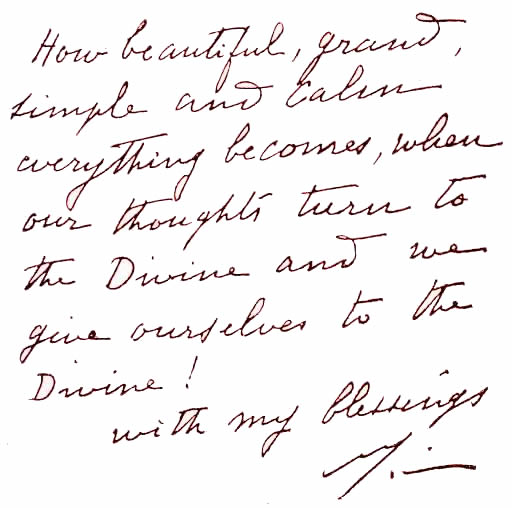 How beautiful, grand,
simple and calm
everything becomes, when
our thoughts turn to
the Divine and we
give ourselves to the
Divine!
with my blessings